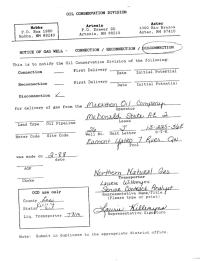 OIL CONSERVATION DIVISION
Hobbs
P.O. Box 1980
Hobbs, NM 88240
Artesia
P.O. Drawer DD
Artesia, NM 88210
Aztec
1000 Rio Brazos
Aztec, NM 87410
NOTICE OF GAS WELL - CONNECTION / RECONNECTION / DISCONNECTION
This is to notify the Oil Conservation Division of the following:
Connection
First Delivery
Date
Initial Potential
Reconnection
First Delivery
Date
Initial Potential
Disconnection
for delivery of gas from the Marathon Oil Company
Operator
McDonald State A/c 2
Lease
Land Type
Oil Pipeline
26 J
Meter Code
Site Code
Well No.
Unit Letter
S-T-R
Eumont Yates 7 Rivers Qn
Pool
was made on 2-88
date
AOF
Choke
Northern Natural Gas
Transporter
Representative Name/Title
(Please type or print)
Representative Signature
OCD use only
County Lea
Liq. Transporter
Note: Submit in duplicate to the appropriate district office.